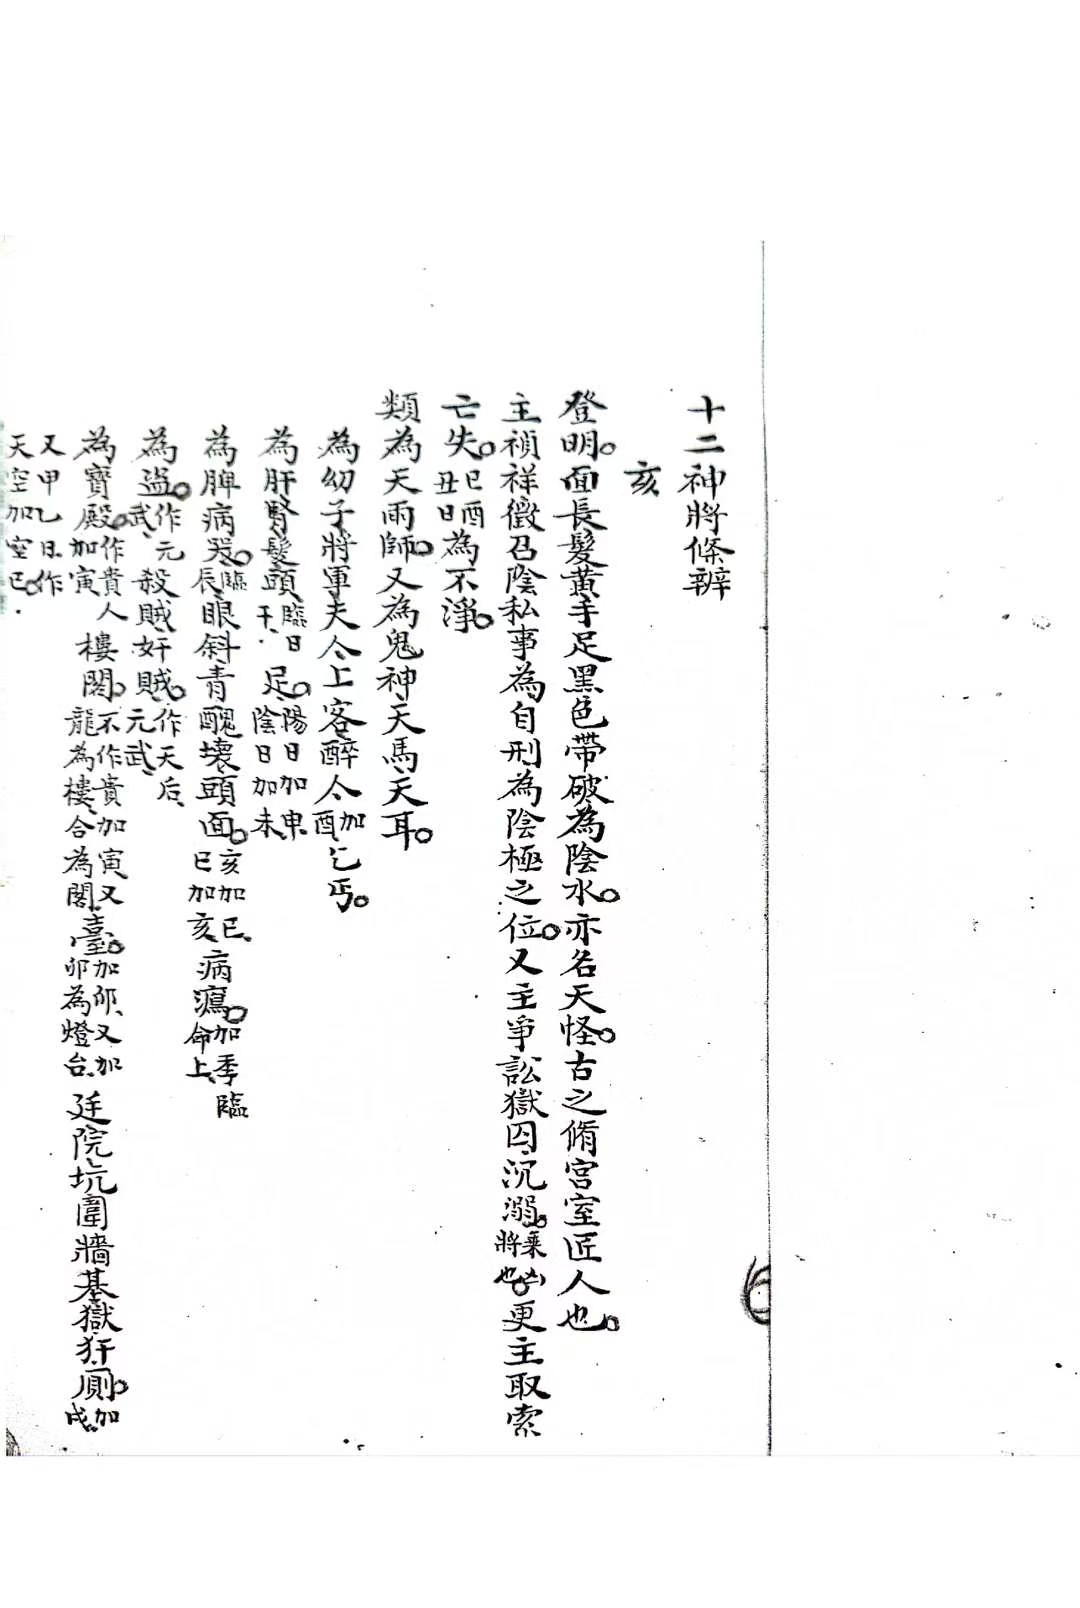 十二神將條辨
亥
登明。面長髮黃手足黑色帶破為陰水。亦名天怪。古之脩宮室匠人也。
主禎祥徵召陰私事為自刑為陰極之位。又主爭訟獄囚沉溺。乘凶將也。更主取索
亡失。巳酉丑日為不淨。
類為天雨師。又為鬼神天馬天耳。
為幼子將軍夫人上客醉人加酉乞丐。
為肝腎髮頭臨日干足。陽日加申陰日加未
為脾病哭。臨辰眼斜青醜壞頭面。亥加巳巳加亥病瀉。加季臨命上
為盜。作元武殺賊奸賊。作天后元武
為寶殿。作貴人加寅樓閣。不作貴加寅又龍為樓合為閣臺。加卯又加卯為燈台廷院坑圍牆基獄犴厠。加戌
又甲乙日作
天空加空巳。